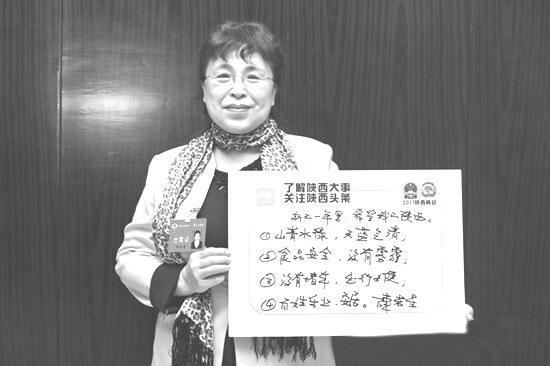 了解陕西大事
关注陕西头条
2017陕西两会
新的一年里 希望我们陕西:
①山青水绿,天蓝气清;
②食品安全,没有雾霾;
③没有堵车,出行方便;
④百姓乐业、安居。
出席证